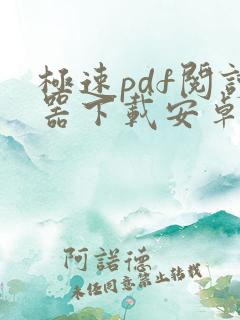 極速pdf閱讀
器下載安卓
阿諾德
未经同意禁止转载